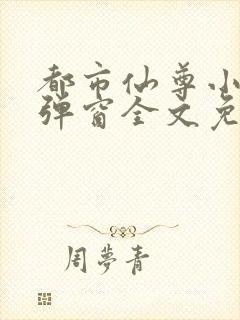 都市仙尊小
弹窗全文免
周夢青